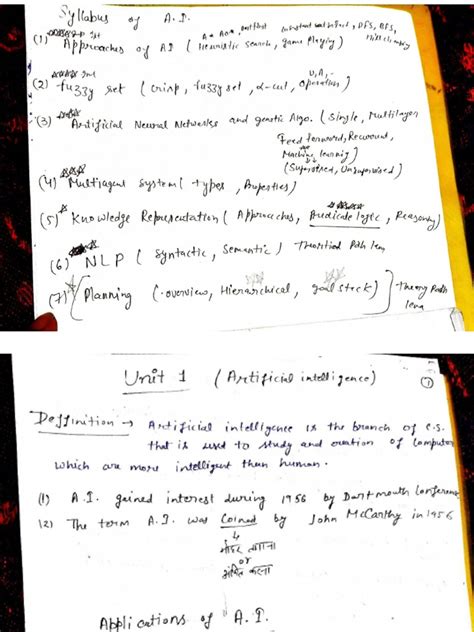 Syllabus of A.I.
A* AO*, constraint satisfact, DFS, BFS,
(1) Approaches of AI (Heuristic Search, game Playing) Hill climbing
U, ∩, -
(2) fuzzy set (crisp, fuzzy set, α-cut, operation)
(3) Artificial Neural Networks and genetic Algo. (Single, Multilayer
Feed forword, Recurrent,
Machine learning)
(Supervised, Unsupervised)
(4) Multiagent System (types, Properties)
(5) Knowledge Representation (Approaches, Predicate logic, Reasoning)
(6) NLP (Syntactic, Semantic)
(7) Planning (overview, Hierarchical, goal stack) Theory
Unit 1 (Artificial intelligence) 1
Deffinition → Artificial intelligence is the branch of C.S.
that is used to study and creation of Computer
which are more intelligent than human.
(1) A.I. gained interest during 1956 by Dartmouth Conference
(2) The term A.I. was Coined by John McCarthy in 1956
or
अंकित करना
Applications of A.I.